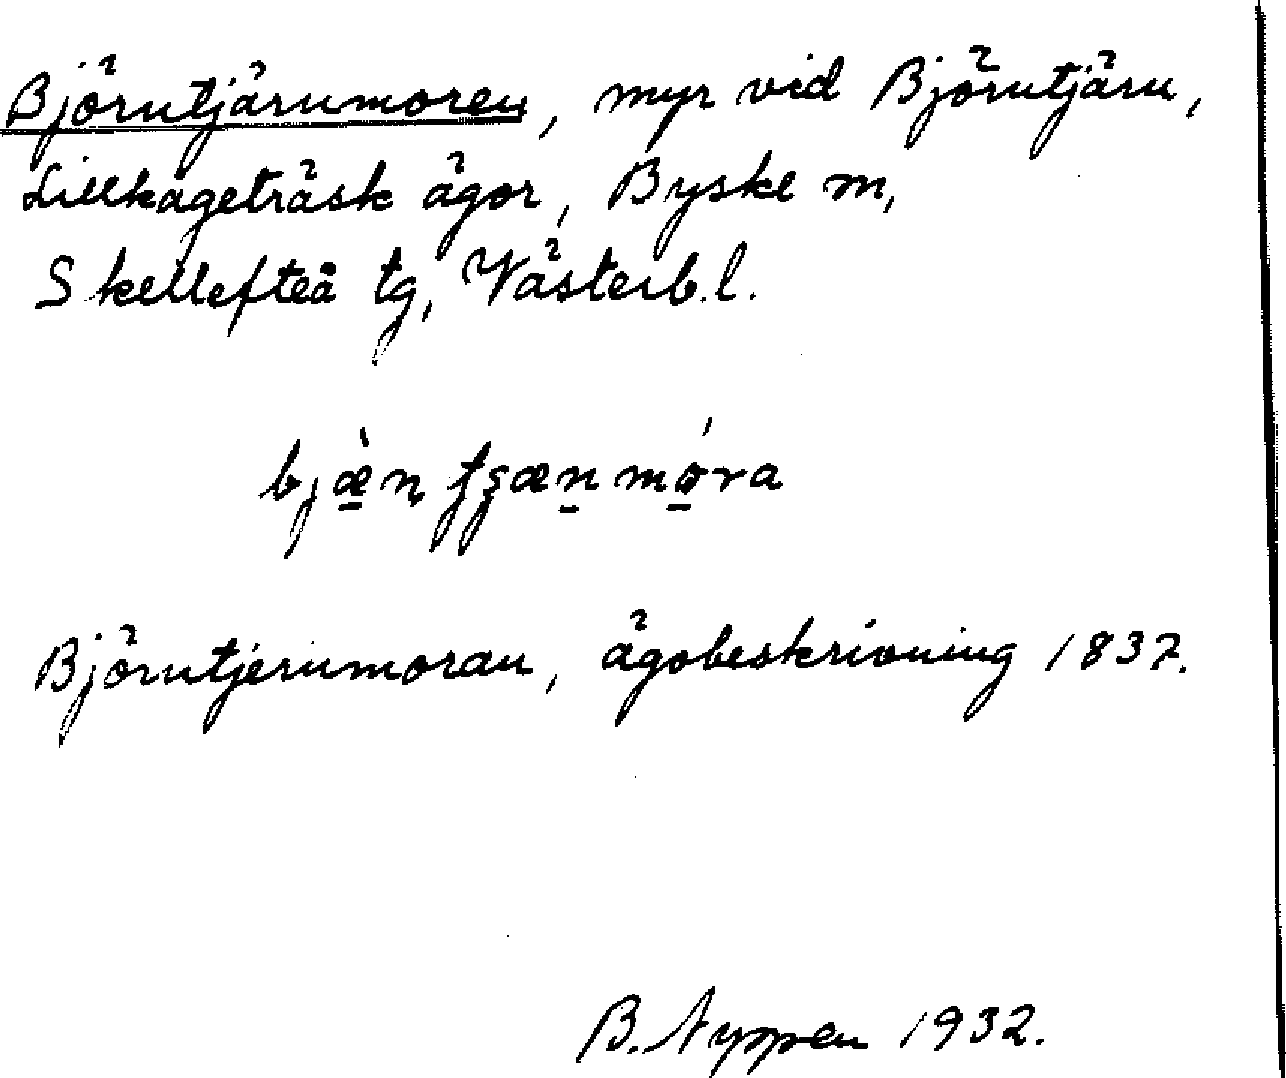 Björntjärnmoren, myr vid Björntjärn,
Lillkågeträsk ägor, Byske sn,
Skellefteå tg, Västerb.l.
bjæ̀n tʂænmóra
Björntjernmoran, ägobeskrivning 1837.
B. Nyppen 1932.